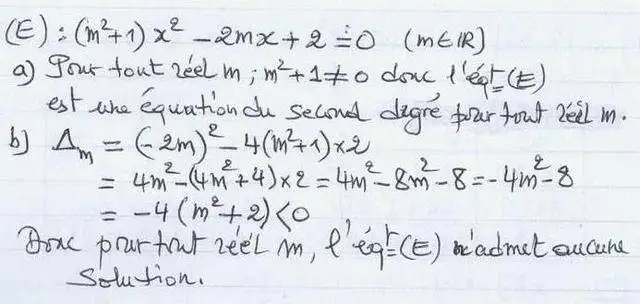 (E) : (m²+1) x² - 2mx + 2 = 0 (m∈IR)
a) Pour tout réel m ; m²+1 ≠ 0 donc l'éqt(E)
est une équation du second degré pour tout réél m.
b) Δm = (-2m)² - 4(m²+1)×2
= 4m² - (4m²+4)×2 = 4m² - 8m² - 8 = -4m² - 8
= -4(m²+2) < 0
Donc pour tout réél m, l'éqt(E) n'admet aucune
solution.